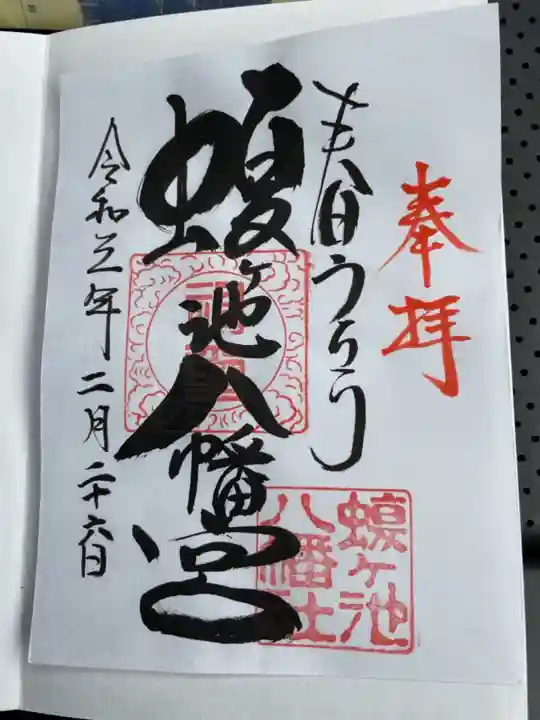 奉拝
春うらら
蝮ヶ池八幡宮
蝮ヶ池
八幡社
令和三年二月二十六日